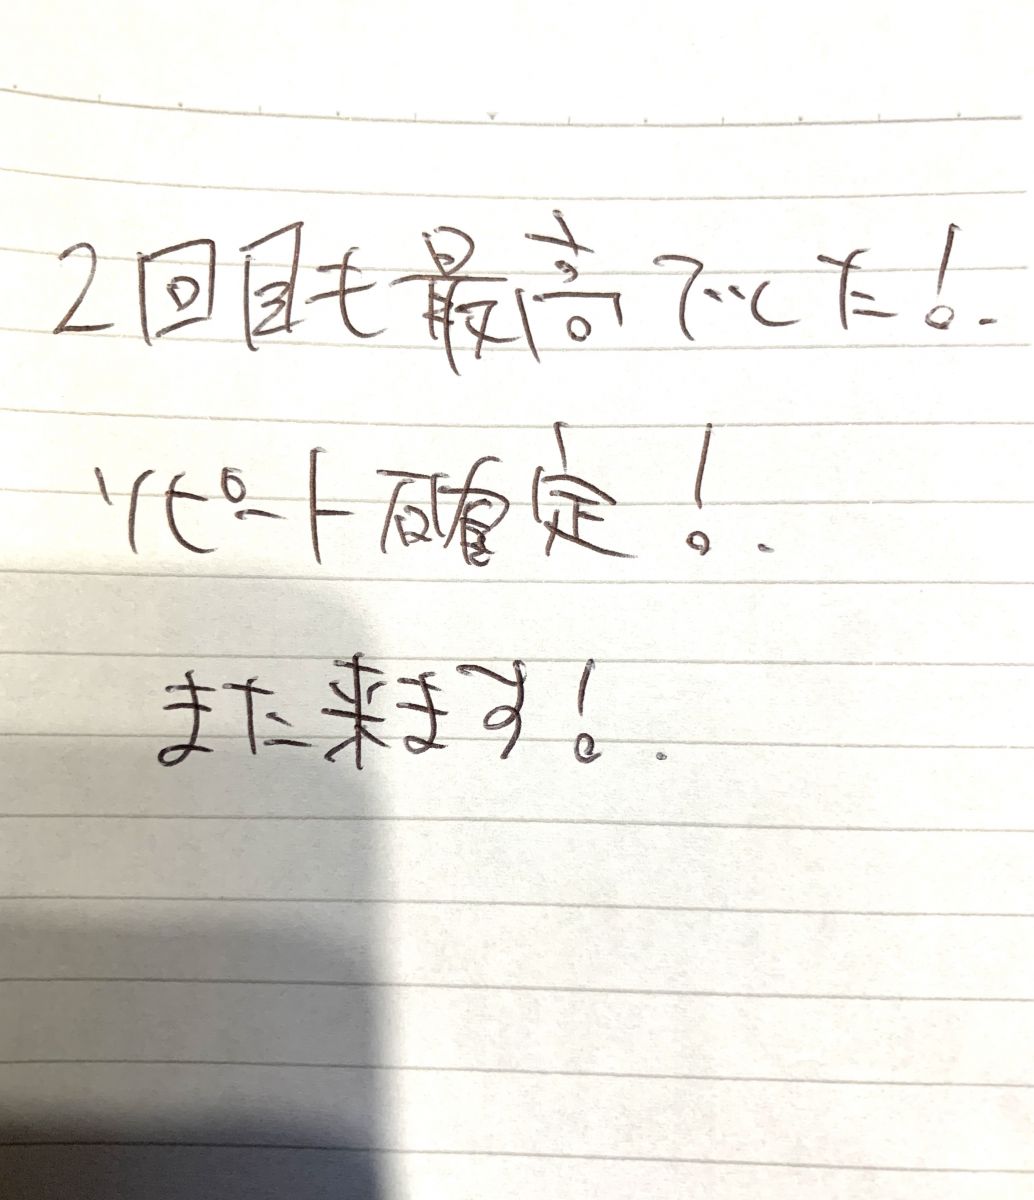 2回目も最高でした!.
リピート確定!.
また来ます!.